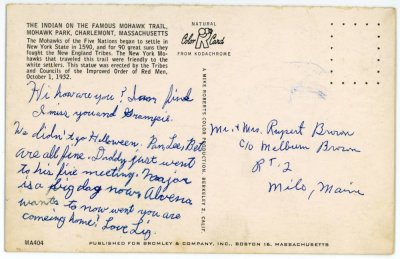 THE INDIAN ON THE FAMOUS MOHAWK TRAIL,
MOHAWK PARK, CHARLEMONT, MASSACHUSETTS
The Mohawks of the Five Nations began to settle in
New York State in 1590, and for 90 great suns they
fought the New England Tribes. The New York Mo-
hawks that traveled this trail were friendly to the
white settlers. This statue was erected by the Tribes
and Councils of the Improved Order of Red Men,
October 1, 1932.
NATURAL
Color R Card
FROM KODACHROME
A MIKE ROBERTS COLOR PRODUCTION, BERKELEY 2, CALIF.
Hi how are you? I am fine
I miss you and Grampie.
We didn't go Halloween. Pam Lee Bob
are all fine. Daddy just went
to his fire meeting. Major
is a big dog now. Alvena
wants to now went you are
comeing home. Love Liz
Mr. & Mrs. Rupert Brown
C/o Melburn Brown
RT. 2
Milo, Maine
MA404
PUBLISHED FOR BROMLEY & COMPANY, INC., BOSTON 16, MASSACHUSETTS